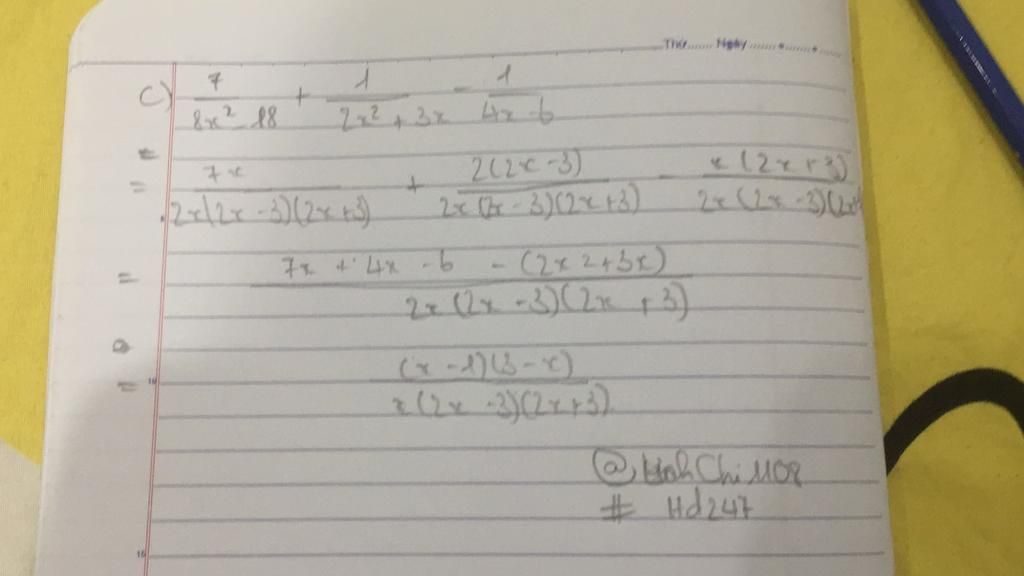 Thứ....... Ngày ........•........•.....
c) 7/(8x² - 18) + 1/(2x² + 3x) - 1/(4x - 6)
= 7x/(2x(2x - 3)(2x + 3)) + 2(2x - 3)/(2x(2x - 3)(2x + 3)) - x(2x + 3)/(2x(2x - 3)(2x
= (7x + 4x - 6 - (2x2 + 3x))/(2x(2x - 3)(2x + 3))
= (x - 1)(3 - x)/(x(2x - 3)(2x + 3))
10
@HahChi1108
# Hd247
15